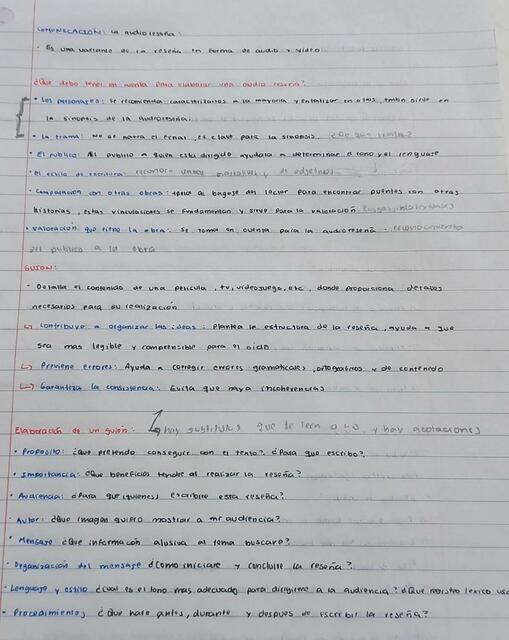 COMUNICACIÓN: La audioreseña:
· Es una variante de la reseña en forma de audio y video
¿Que debo tener en cuenta para elaborar una audio reseña?
· Los personajes: se recomienda caracterizarlos a la mayoria y enfatizar en ellos, tmbn sirve en
la sinopsis de la audioreseña.
· La trama: No se narra el final, es clave para la sinopsis. ¿De que trata?
· El publico: Al publico a quien esta dirigido ayudara a determinar el tono y el lenguaje
· el estilo de escritura: reconoce voces narrativas y di
· Comparación con otras obras: apela al bagaje del lector para encontrar puentes con otras
historias, estas vinculaciones se fundamentan y sirve para la valoración
· Valoración que tiene la obra: Se toma en cuenta para la audioreseña - reconocimiento
del publico a la obra
GUION:
· Detalla el contenido de una pelicula, tv, videojuego, etc, donde proporciona detalles
necesarios para su realización
↳ Contribuye a organizar las ideas: Plantea la estructura de la reseña, ayuda a que
sea mas legible y comprensible para el oido
↳ Previene errores: Ayuda a corregir errores gramaticales, ortograficos y de contenido
↳ Garantiza la consistencia: Evita que haya incoherencias
Elaboración de un guion: ↳ hay subtitulos que se leen o no y hay acotaciones
· Proposito: ¿Que pretendo conseguir con el texto?, ¿Para que escribo?,
· Importancia: ¿Que beneficios tendre al realizar la reseña?
· Audiencia: ¿Para que (quienes) escribire esta reseña?
· Autor: ¿Que imagen quiero mostrar a mi audiencia?
· Mensaje ¿Que información alusiva al tema buscare?
· Organización del mensaje ¿Como iniciare y concluire la reseña?
· Lenguaje y estilo ¿Cual es el tono mas adecuado para dirigirme a la audiencia? ¿Que registro lexico
· Procedimiento; ¿Que hare antes, durante y despues de escribir la reseña?